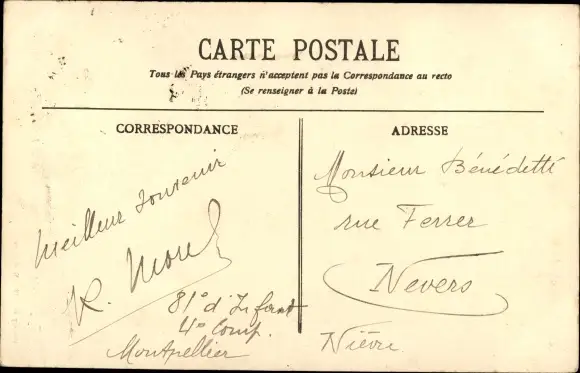 CARTE POSTALE
Tous les Pays étrangers n'acceptent pas la Correspondance au recto
(Se renseigner à la Poste)
CORRESPONDANCE
Meilleur souvenir
R. Morel
81e d'Infant
4e Comp.
Montpellier
ADRESSE
Monsieur Bénédetti
rue Ferrer
Nevers
Nièvre